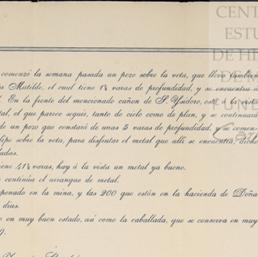 CENT
ESTU
DE HI
comenzó la semana pasada un pozo sobre la veta, que lleva tambien
Matilde, el cual tiene 1¾ varas de profundidad, y se encuentra
En la frente del mencionado cañon de S. Ysidoro, está á la vista
tal, el que parece seguir, tanto de cielo como de plan, y se continuará
de un pozo que constará de unas 5 varas de profundidad, y se comen
lipe sobre la veta, para disfrutar el metal que allí se encuentra, dicho
ladas.
iene 41¼ varas, hay á la vista un metal ya bueno.
continúa el arranque de metal.
apenado en la mina, y las 200 que están en la hacienda de Doña
dias.
en muy buen estado, así como la caballada, que se conserva en muy